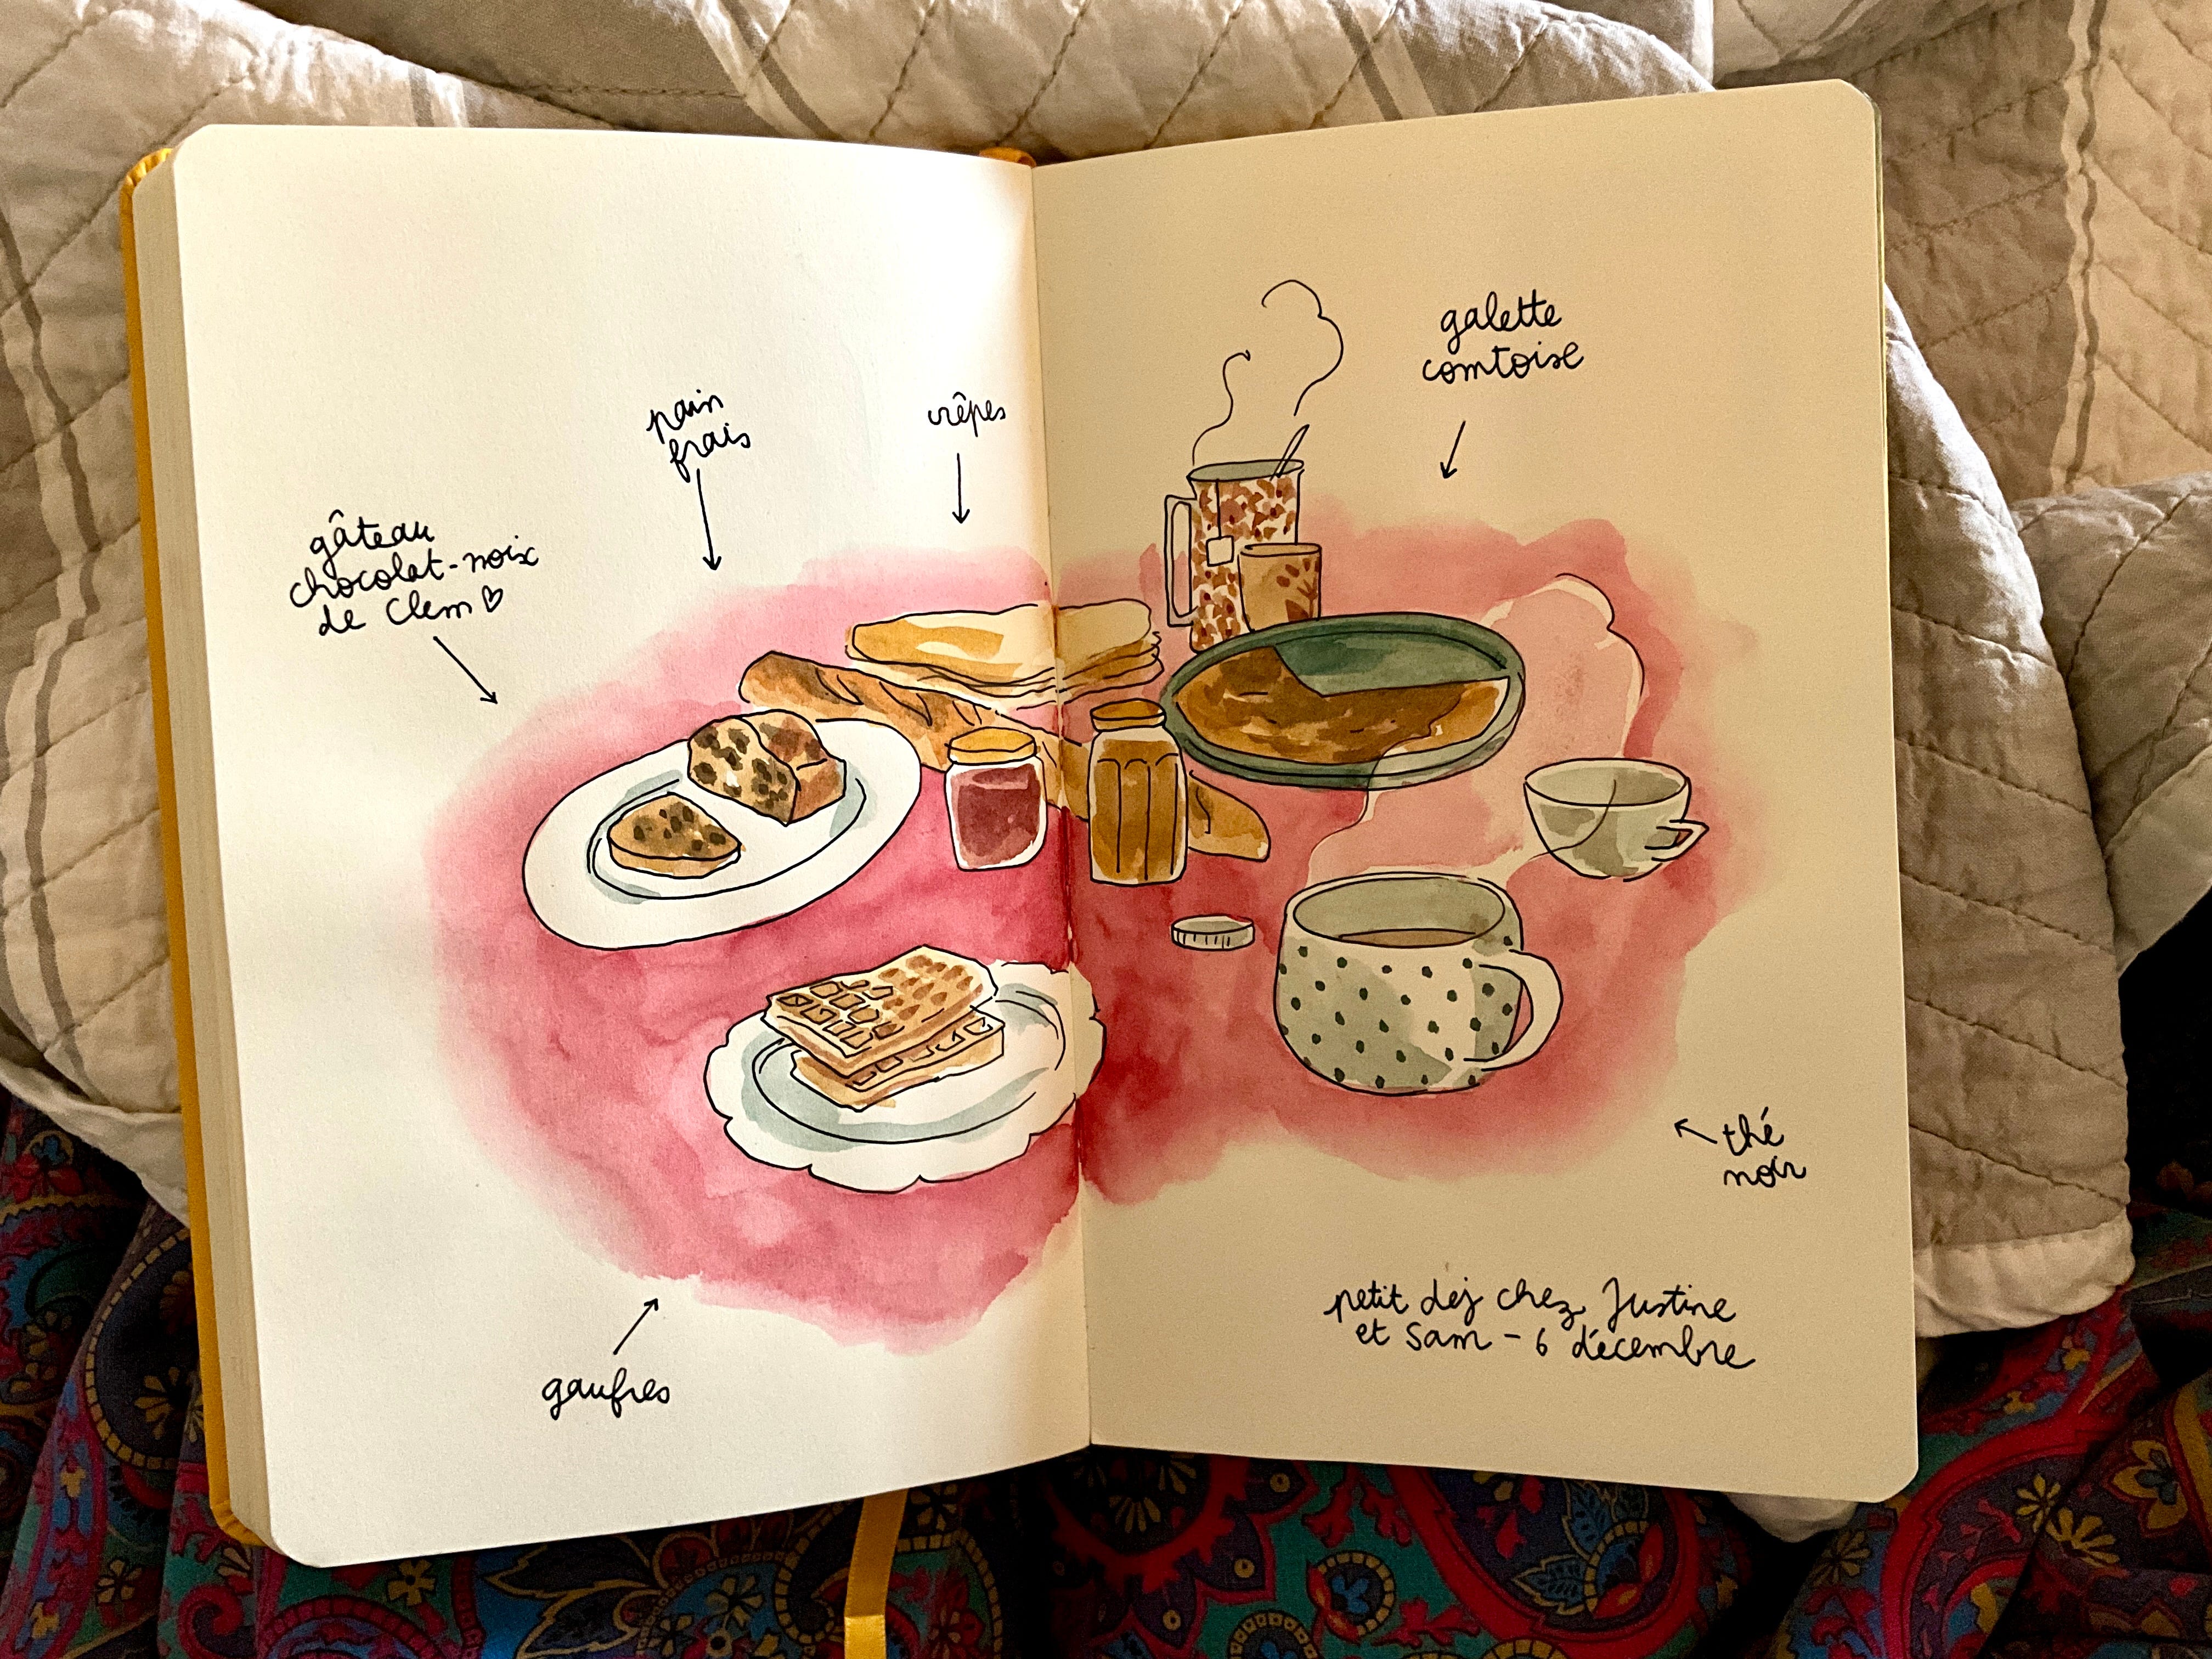 gâteau
chocolat-noix
de Clem
pain
frais
crêpes
gaufres
galette
comtoise
thé
noir
petit dej chez Justine
et Sam - 6 décembre